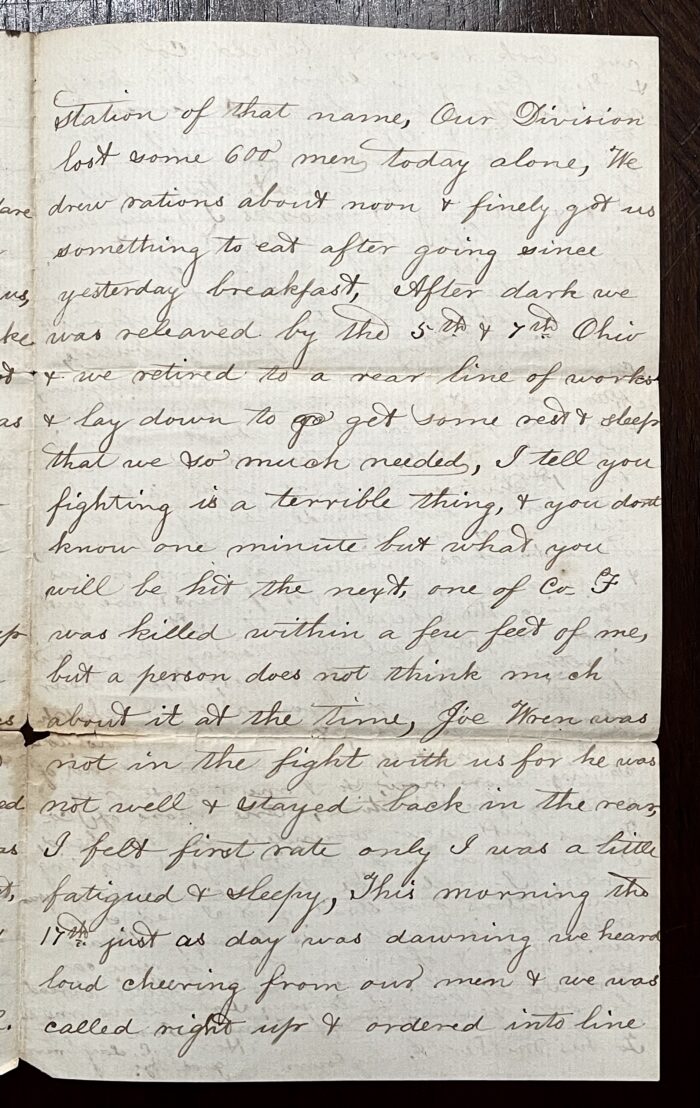 station of that name, Our Division
lost some 600 men, today alone, We
drew rations about noon & finely got us
something to eat after going since
yesterday breakfast, After dark we
was releaved by the 5th & 7th Ohio
& we retired to a rear line of works
& lay down to go get some rest & sleep
that we so much needed, I tell you
fighting is a terrible thing, & you dont
know one minute but what you
will be hit the next, one of Co F
was killed within a few feet of me,
but a person does not think much
about it at the time, Joe Wren was
not in the fight with us for he was
not well & stayed back in the rear,
I felt first rate only I was a little
fatigued & sleepy, This morning the
17th just as day was dawning we heard
loud cheering from our men & we was
called right up & ordered into line